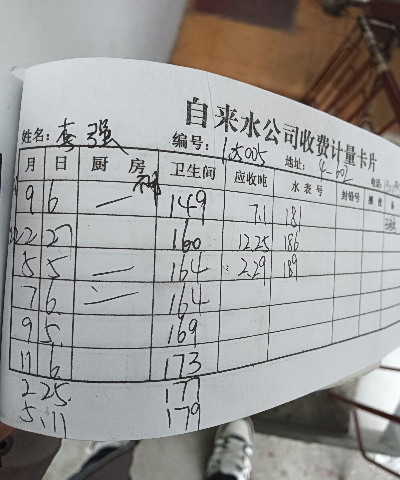 自来水公司收费计量卡片
姓名: 李强 编号: 165005 地址: 4-602 电话:
月 日 厨房 卫生间 应收吨 水表号 封铅号
9 6 — 149 7.1 181
22 27 160 12.25 186
5 5 — 164 2.29 189
7 6 — 164
9 5. 169
11 6 173
2 25. 177
5. 11 179